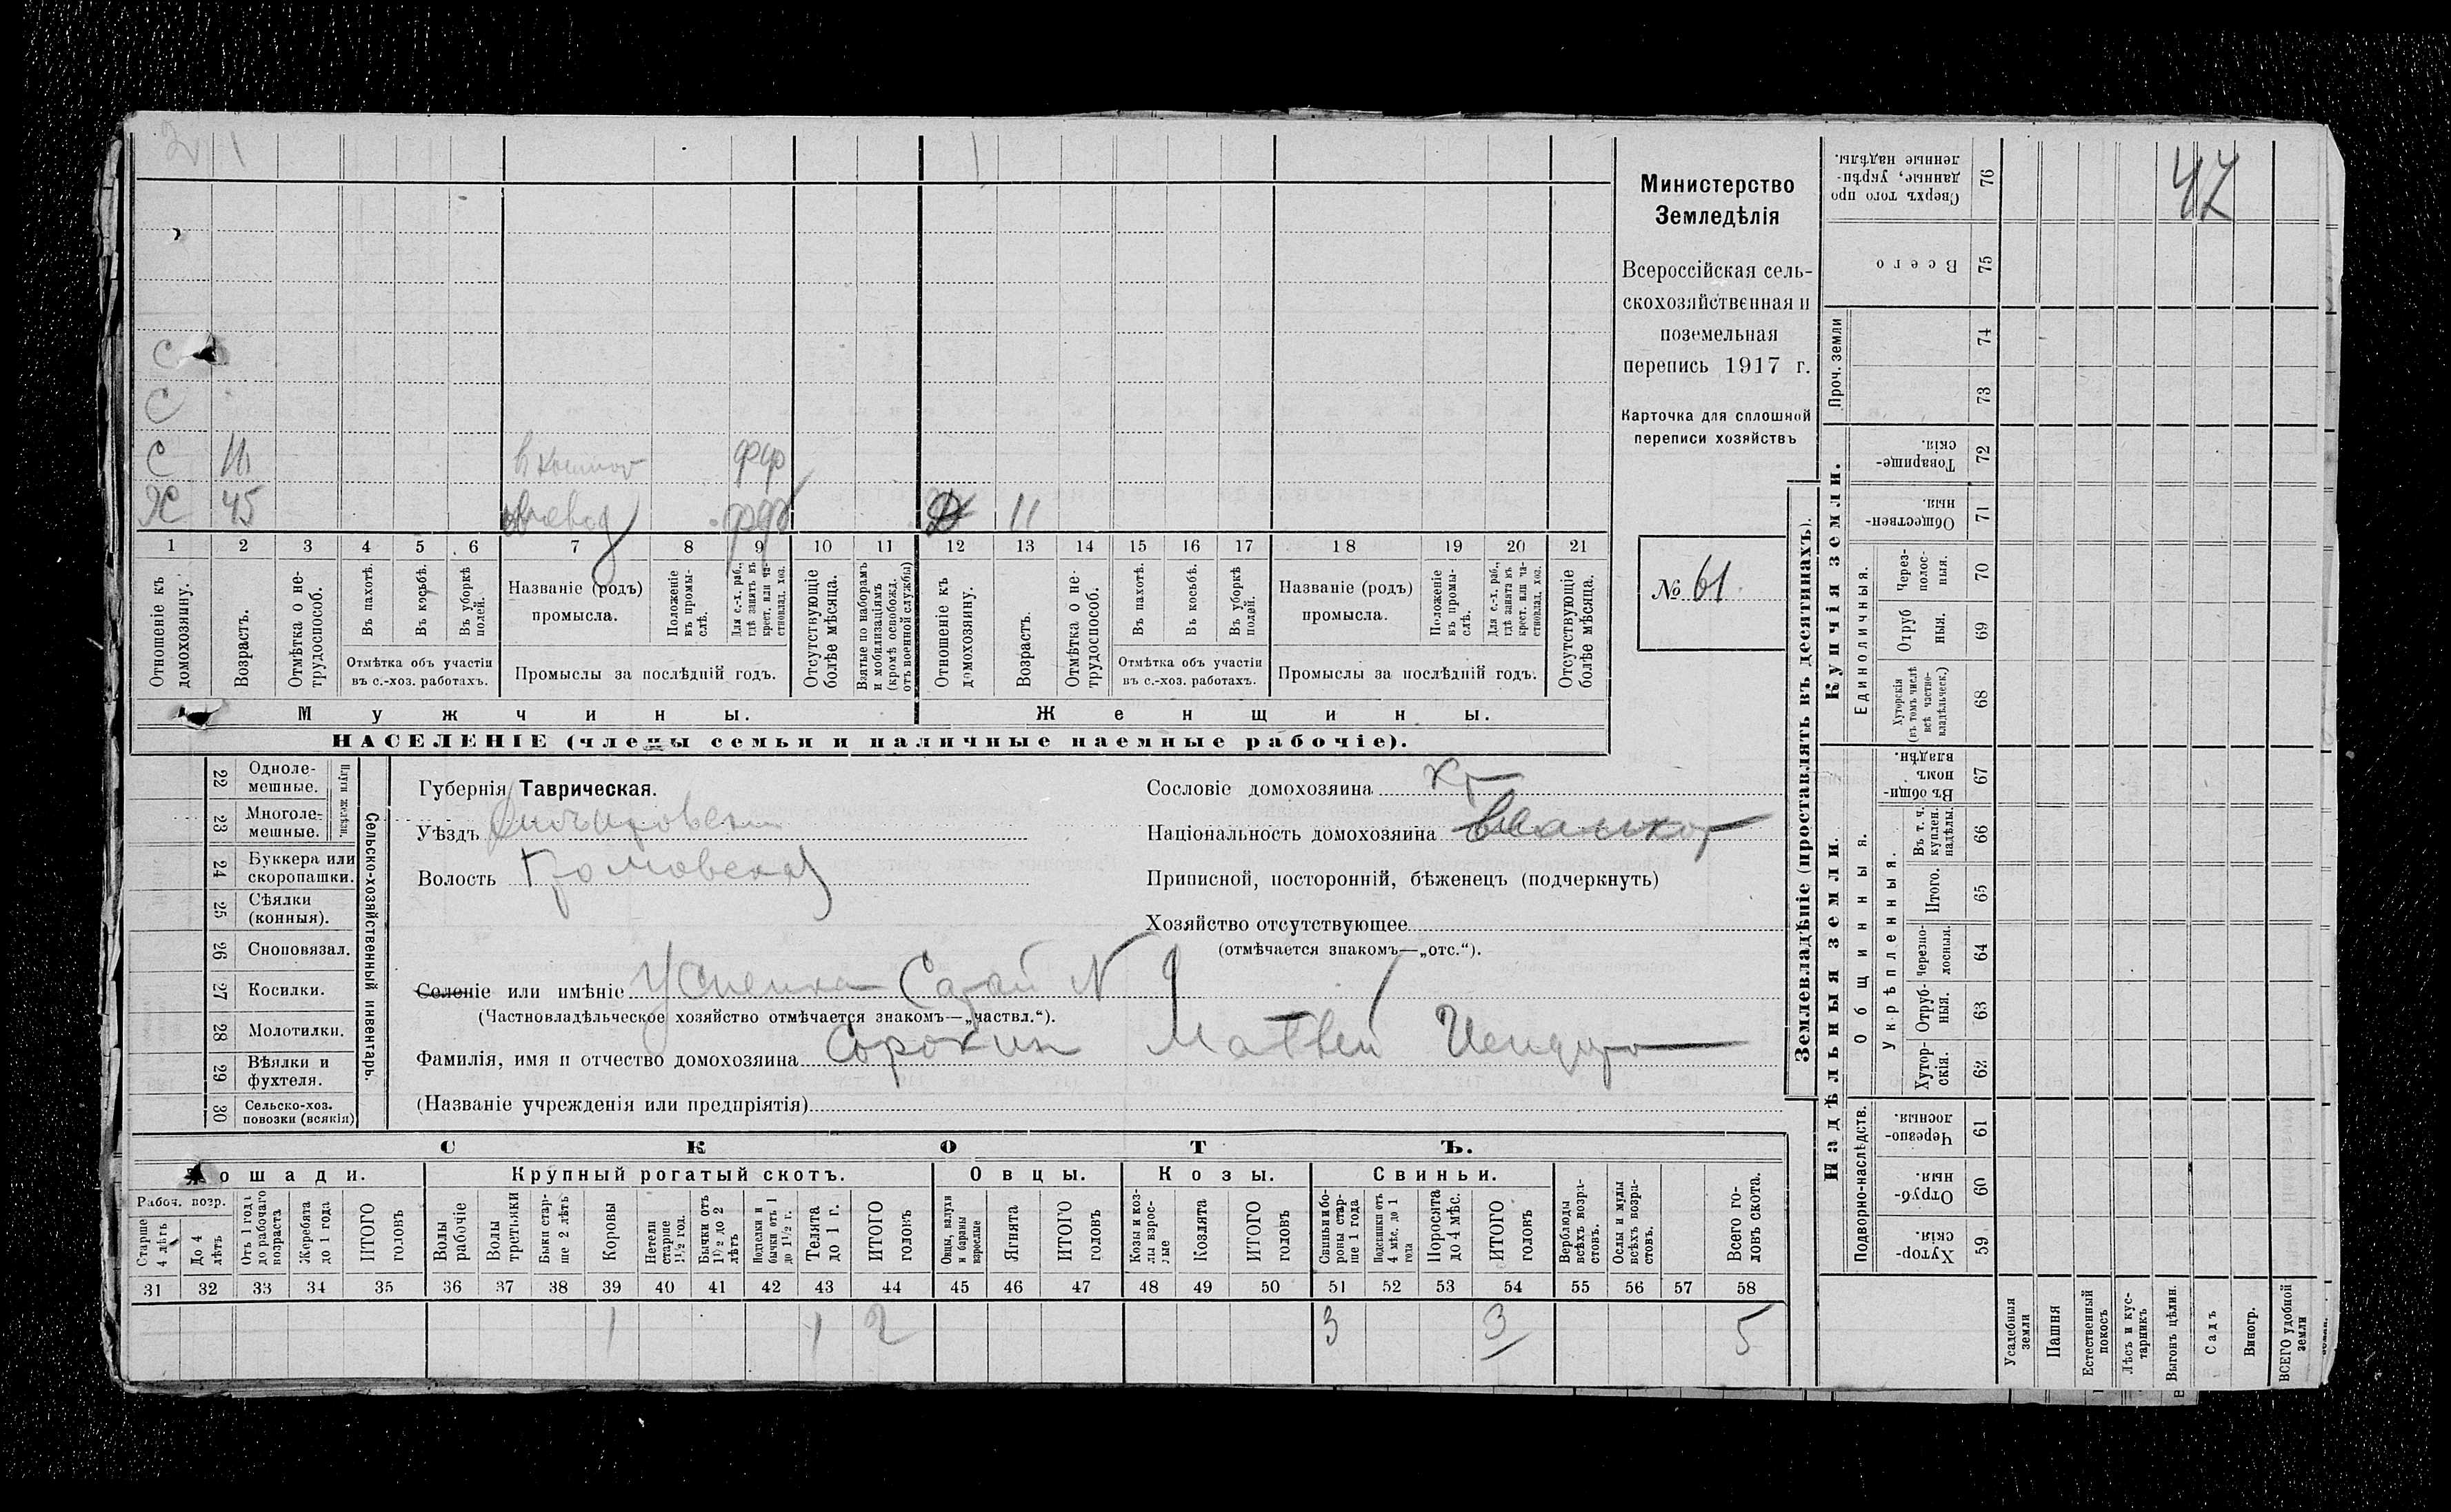 2 1
1
С
С
С 11
Х 45
Д 11
1 2 3 4 5 6 7 8 9 10 11 12 13 14 15 16 17 18 19 20 21
Отношеніе къ домохозяину.
Возрастъ.
Отмѣтка о не-трудоспособ.
Въ пахотѣ.
Въ косьбѣ.
Въ уборкѣ полей.
Отмѣтка объ участіи
въ с.-хоз. работахъ.
Названіе (родъ)
промысла.
Положеніе въ промы-слѣ.
Для с.-х. раб., гдѣ занятъ въ крест. или ча-стновлад. хоз.
Промыслы за послѣдній годъ.
Отсутствующіе болѣе мѣсяца.
Взятые по наборамъ и мобилизаціямъ (кромѣ освобожд. отъ военной службы)
Отношеніе къ домохозяину.
Возрастъ.
Отмѣтка о не-трудоспособ.
Въ пахотѣ.
Въ косьбѣ.
Въ уборкѣ полей.
Отмѣтка объ участіи
въ с.-хоз. работахъ.
Названіе (родъ)
промысла.
Положеніе въ промы-слѣ.
Для с.-х. раб., гдѣ занята въ крест. или ча-стновлад. хоз.
Промыслы за послѣдній годъ.
Отсутствующіе болѣе мѣсяца.
Мужчины.
Женщины.
НАСЕЛЕНІЕ (члены семьи и наличные наемные рабочіе).
Министерство
Земледѣлія
Всероссійская сель-
скохозяйственная и
поземельная
перепись 1917 г.
Карточка для сплошной
переписи хозяйствъ
№ 61.
22 Одноле-мешные.
23 Многоле-мешные.
Плуги желѣзн.
24 Буккера или скоропашки.
25 Сѣялки (конныя).
26 Сноповязал.
27 Косилки.
28 Молотилки.
29 Вѣялки и фухтеля.
30 Сельско-хоз. повозки (всякія)
Сельско-хозяйственный инвентарь.
Губернія Таврическая.
Уѣздъ
Волость Громовская
Селеніе или имѣніе Успенка Сагай N
(Частновладѣльческое хозяйство отмѣчается знакомъ—„частвл.“).
Фамилія, имя и отчество домохозяина Сорокин Матвей
(Названіе учрежденія или предпріятія)
Сословіе домохозяина кр
Національность домохозяина
Приписной, посторонній, бѣженецъ (подчеркнуть)
Хозяйство отсутствующее
(отмѣчается знакомъ—„отс.“).
СКОТЪ.
Лошади. Крупный рогатый скотъ. Овцы. Козы. Свиньи.
Рабоч. возр.
Старше 4 лѣтъ
До 4 лѣтъ
Отъ 1 года до рабочаго возраста
Жеребята до 1 года
ИТОГО головъ
Волы рабочіе
Волы третьяки
Быки стар-ше 2 лѣтъ
Коровы
Нетели старше 1½ год.
Бычки отъ 1½ до 2 лѣтъ
Подтелки и бычки отъ 1 до 1½ г.
Телята до 1 г.
ИТОГО головъ
Овцы, валухи и бараны взрослые
Ягнята
ИТОГО головъ
Козы и коз-лы взрос-лые
Козлята
ИТОГО головъ
Свиньи и бо-ровы стар-ше 1 года
Подсвинки отъ 4 мѣс. до 1 года
Поросята до 4 мѣс.
ИТОГО головъ
Верблюды всѣхъ возра-стовъ.
Ослы и мулы всѣхъ возра-стовъ.
Всего го-ловъ скота.
31 32 33 34 35 36 37 38 39 40 41 42 43 44 45 46 47 48 49 50 51 52 53 54 55 56 57 58
1 1 2 3 3 5
Землевладѣніе (проставлять въ десятинахъ).
47
Сверхъ того про данные, укрѣп-ленные надѣлы. 76
Всего 75
Проч. земли
74
73
Купчія земли.
Товарище-скія. 72
Обществен-ныя. 71
Единоличныя.
Через-полос-ныя. 70
Отруб ныя. 69
Хуторскія (въ томъ числѣ всѣ частно-владѣльческ.) 68
Надѣльныя земли.
Общинныя.
Въ общи-номъ владѣн. 67
Укрѣпленныя.
Въ т. ч. куплен. надѣлы 66
Итого. 65
Черезпо-лосныя. 64
Отруб-ныя. 63
Хутор-скія. 62
Подворно-наслѣдств.
Черезпо-лосныя. 61
Отруб-ныя. 60
Хутор-скія. 59
Усадебныя земли
Пашня
Естественный покосъ
Лѣсъ и кус-тарникъ
Выгонъ цѣлин.
Садъ
Виногр.
ВСЕГО удобной земли